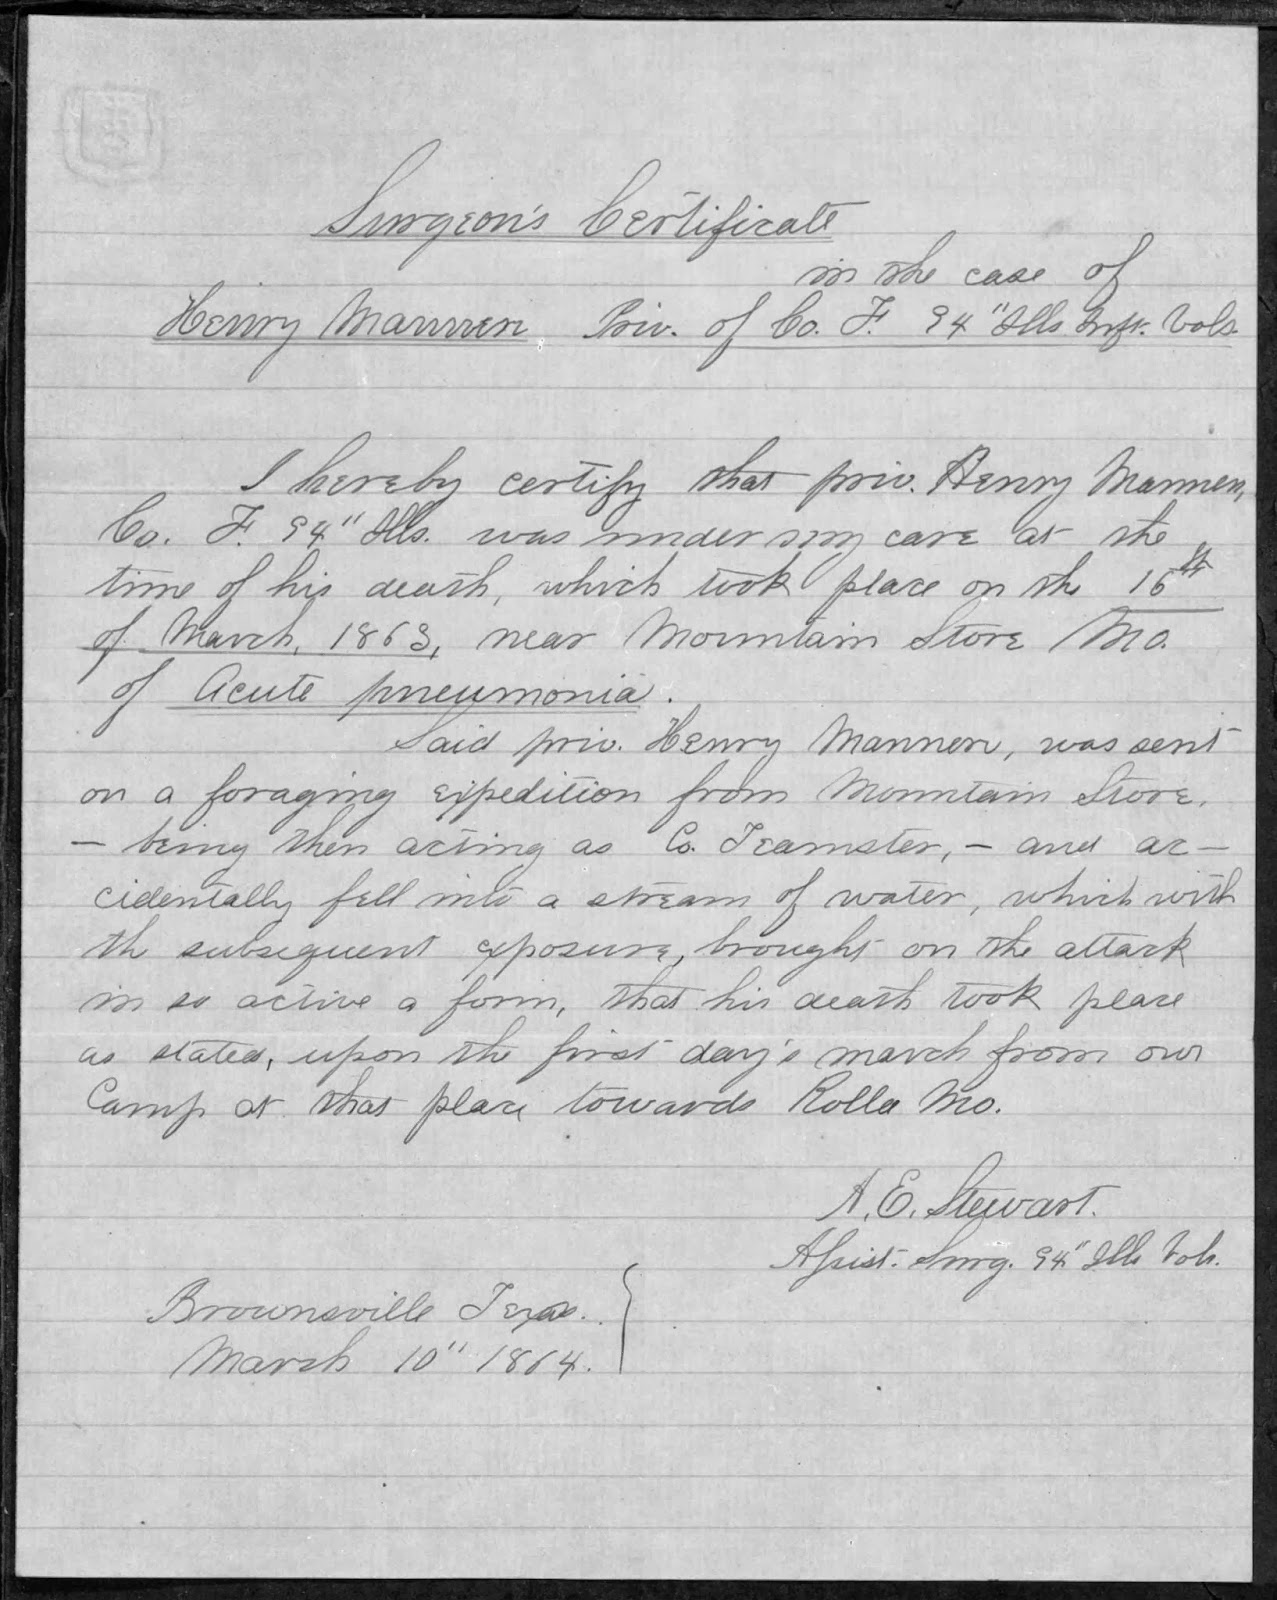 Surgeon's Certificate
in the case of
Henry Mannen Priv. of Co. F. 94" Ills Inft. Vols.
I hereby certify that priv. Henry Mannen,
Co. F. 94" Ills. was under my care at the
time of his death, which took place on the 16th
of March, 1863, near Mountain Store Mo.
of Acute pneumonia.
Said priv. Henry Mannen, was sent
on a foraging expedition from Mountain Store.
— being then acting as Co. Teamster, — and ac—
cidentally fell into a stream of water, which with
th subsequent exposure, brought on the attack
in so active a form, that his death took place
as stated, upon the first day's march from our
Camp at that place towards Rolla Mo.
A. E. Stewart.
Assist. Surg. 94" Ills Vols.
Brownsville Texas.
March 10" 1864.